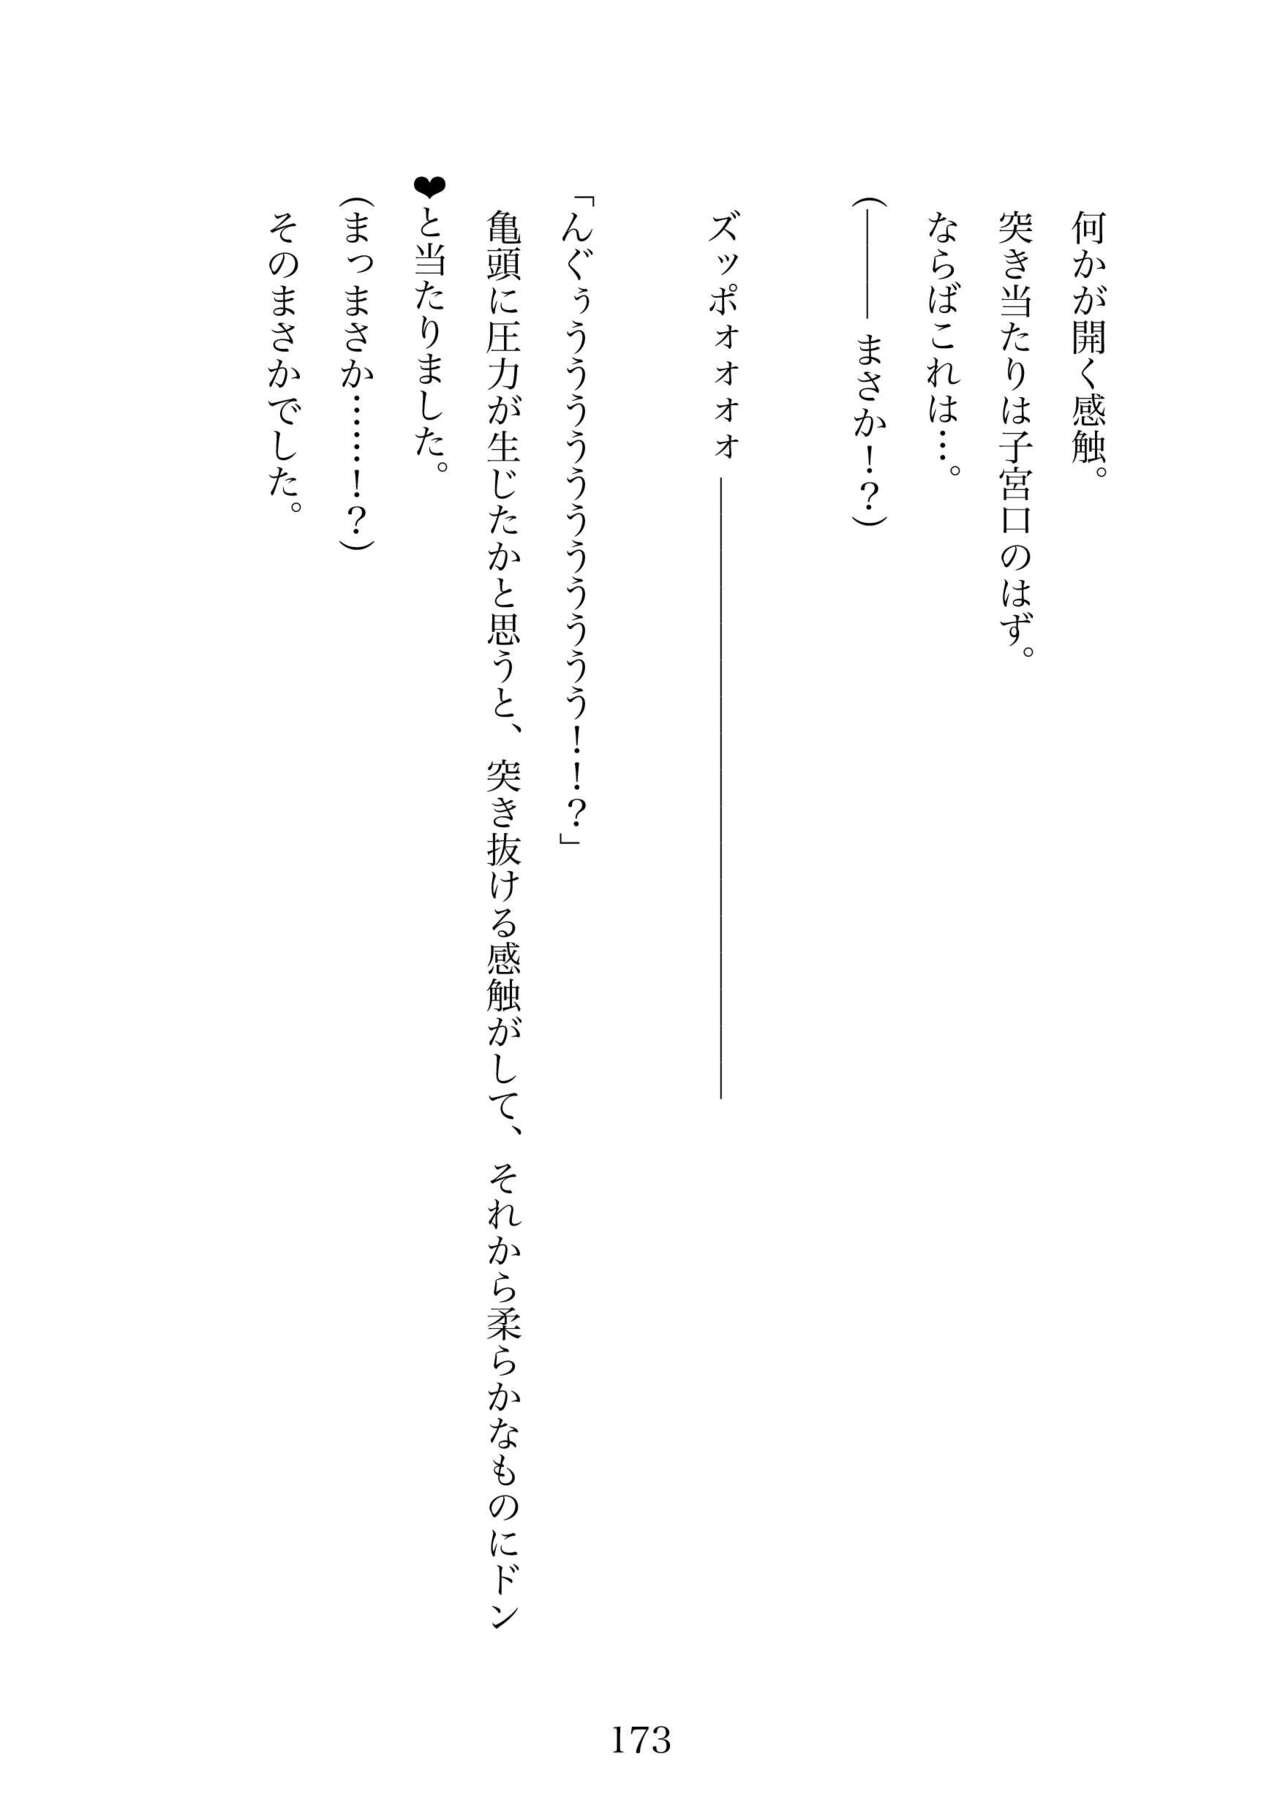 何かが開く感触。
突き当たりは子宮口のはず。
ならばこれは…。
（――― まさか！？）
ズッポォォォォ―――――――――――――――――
「んぐぅうううううううううう！！？」
亀頭に圧力が生じたかと思うと、突き抜ける感触がして、それから柔らかなものにドン
❤と当たりました。
（まっまさか……！？）
そのまさかでした。
173